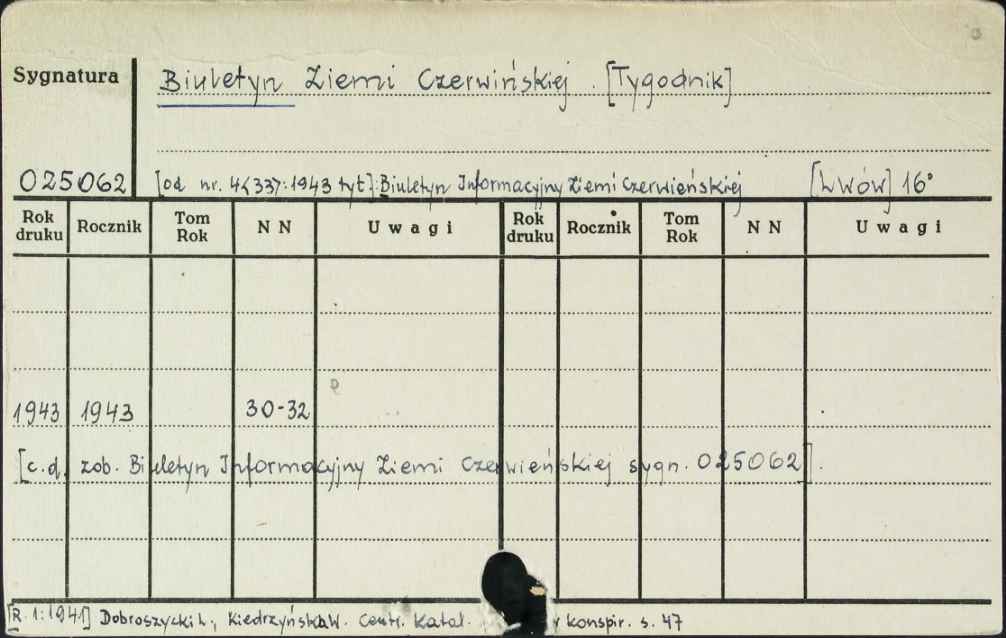 Sygnatura Biuletyn Ziemi Czerwińskiej. [Tygodnik]
025062 [od nr. 4(33):1943 tyt]: Biuletyn Informacyjny Ziemi Czerwieńskiej [Lwów] 16°
Rok druku Rocznik Tom Rok NN Uwagi Rok druku Rocznik Tom Rok NN Uwagi
1943 1943 30-32
[c.d. zob. Biuletyn Informacyjny Ziemi Czerwieńskiej sygn. 025062].
[R. 1:1941] Dobroszycki L., Kiedrzyńska W. Centr. Katal. y konspir. s. 47